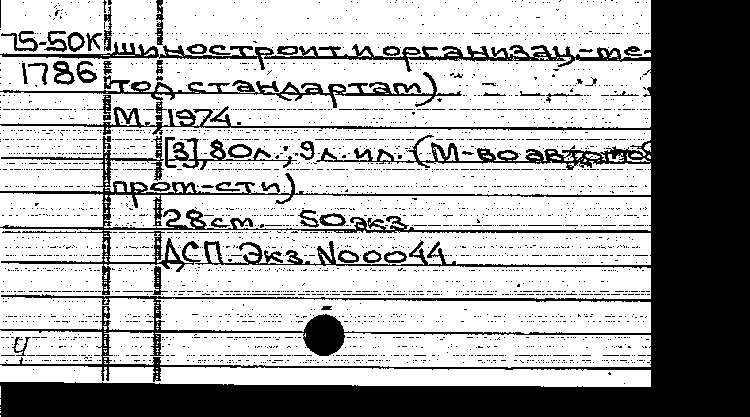 75-50К шиностроит. и организац.-ме-
1786 тод. стандартам).
М., 1974.
[3], 80л.; 9л. ил. (М-во автомоб.
пром-сти).
28 см. 50 экз.
ДСП. Экз. N00044.
4